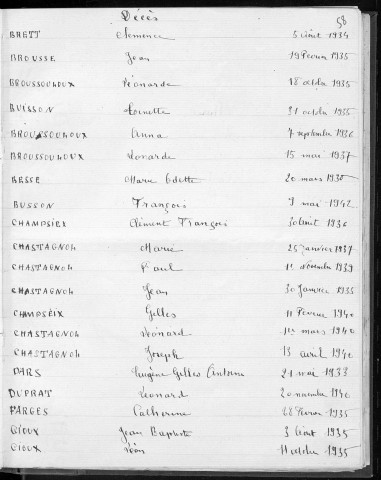 Décès
58
BRETT Clemence 5 Août 1934
BROUSSE Jean 19 Février 1935
BROUSSOULOUX Léonarde 18 octobre 1935
BUISSON Toinette 31 octobre 1935
BROUSSOULOUX Anna 7 septembre 1936
BROUSSOULOUX Léonarde 15 mai 1937
BESSE Marie Odette 20 mars 1930
BUSSON François 9 mai 1942
CHAMPSEIX Clément François 30 Août 1936
CHASTAGNOL Marie 25 janvier 1937
CHASTAGNOL Paul 11 Novembre 1939
CHASTAGNOL Jean 30 Janvier 1935
CHAMPSEIX Gilles 11 Février 1940
CHASTAGNOL Léonard 1er mars 1940
CHASTAGNOL Joseph 13 avril 1940
DARS Eugène Gilles Antoine 21 mai 1933
DUPRAT Léonard 20 novembre 1940
FARGES Catherine 28 Février 1935
GIOUX Jean Baptiste 3 Août 1935
GIOUX Léon 11 octobre 1935